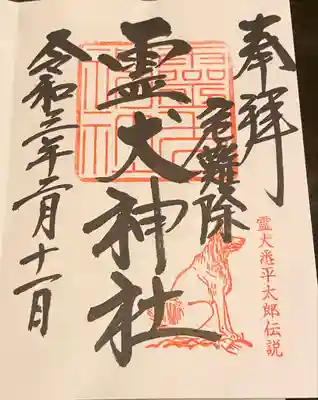 奉拝
危難除
霊犬悉平太郎伝説
霊犬神社
令和三年二月十一日